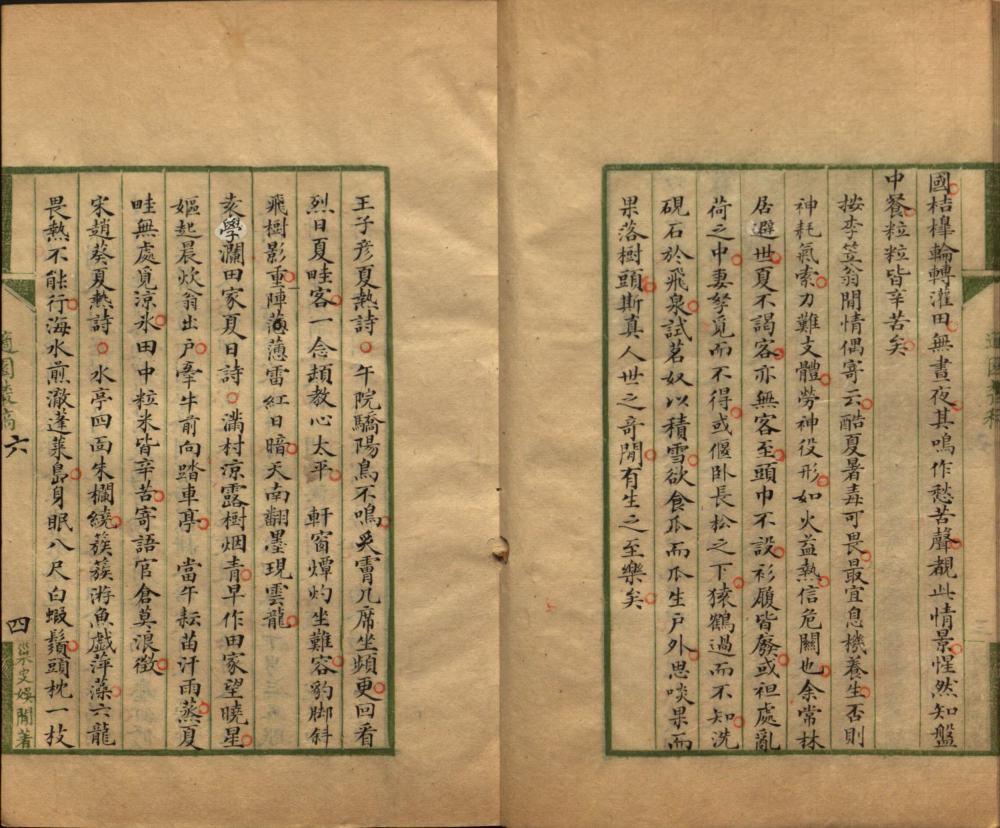 國桔槹輪轉灌田無晝夜其鳴作愁苦聲覩此情景惺然知盤
中餐粒粒皆辛苦矣
按李笠翁閒情偶寄云酷夏暑毒可畏最宜息機養生否則
神耗氣索力難支體勞神役形如火益熱信危關也余常林
居避世夏不謁客亦無客至頭巾不設衫履皆廢或袒處亂
荷之中妻孥覓而不得或偃卧長松之下猿鶴過而不知洗
硯石於飛泉試茗奴以積雪欲食瓜而瓜生户外思啖果而
果落樹頭斯真人世之奇閒有生之至樂矣
王子彦夏熱詩 午院驕陽鳥不鳴 几席坐頻更回看
烈日夏畦客一念頡教心太平 軒窗燂灼坐難容豹脚斜
飛樹影重陣陣薰薰雷紅日暗天南翻墨現雲龍
袤學瀾田家夏日詩 滿村涼露樹烟青早作田家望曉星
嫗起晨炊翁出户牽牛前向踏車亭 當午耘苗汗雨蒸夏
畦無處覓涼氷田中粒米皆辛苦寄語官倉莫浪徵
宋趙葵夏熱詩 水亭四面朱欄繞簇簇游魚戲萍藻六龍
畏熱不能行海水煎澈蓬萊島身眠八尺白蝦鬚頭枕一枝
適園叢稿 六
四 巢叟娛閒著